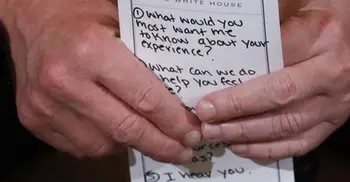 WHITE HOUSE
① What would you
most want me
to know about your
experience?
② What can we do
help you feel
e?
as?
⑤ I hear you.